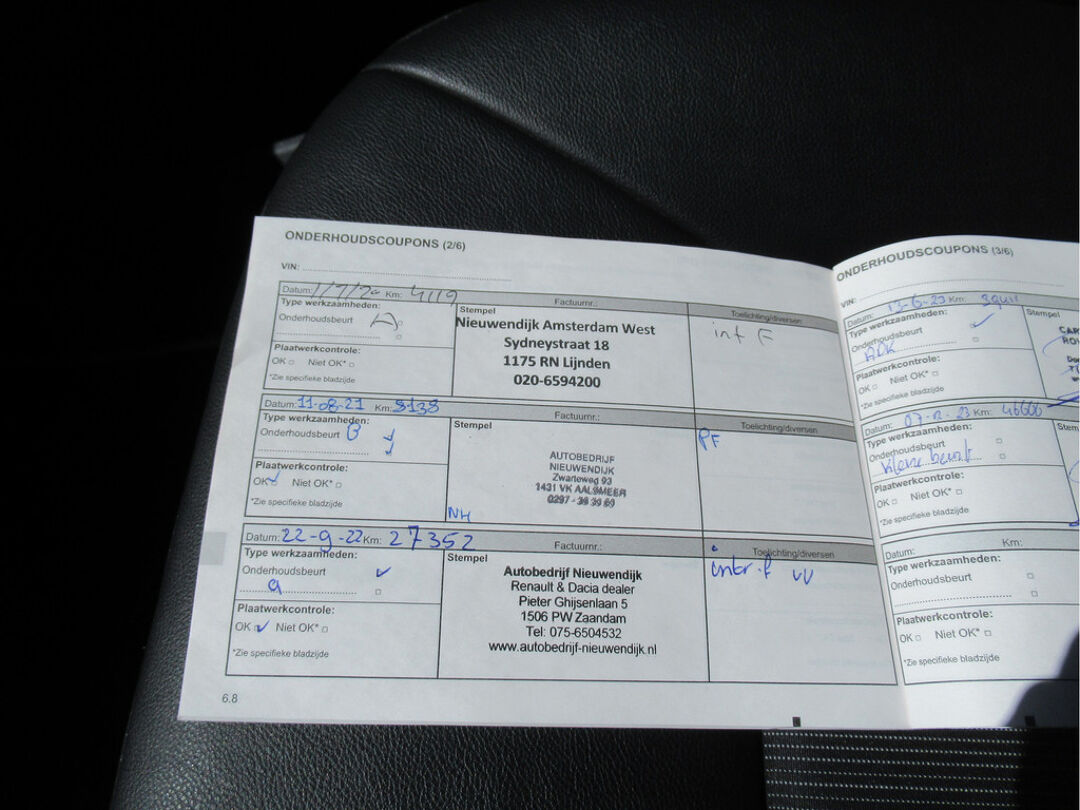 ONDERHOUDSCOUPONS (2/6)
VIN:
Datum: 1/7/20 Km: 4119 Factuurnr.: Toelichting/diversen
Type werkzaamheden:
Onderhoudsbeurt A
Plaatwerkcontrole:
OK Niet OK*
*Zie specifieke bladzijde
Stempel
Nieuwendijk Amsterdam West
Sydneystraat 18
1175 RN Lijnden
020-6594200
int F
Datum: 11-08-21 Km: 8138 Factuurnr.: Toelichting/diversen
Type werkzaamheden:
Onderhoudsbeurt B
Plaatwerkcontrole:
OK Niet OK*
*Zie specifieke bladzijde
Stempel
AUTOBEDRIJF
NIEUWENDIJK
Zwarteweg 93
1431 VK AALSMEER
0297 -
NH
PF
Datum: 22-9-22 Km: 27352 Factuurnr.: Toelichting/diversen
Type werkzaamheden:
Onderhoudsbeurt
a
Plaatwerkcontrole:
OK Niet OK*
*Zie specifieke bladzijde
Stempel
Autobedrijf Nieuwendijk
Renault & Dacia dealer
Pieter Ghijsenlaan 5
1506 PW Zaandam
Tel: 075-6504532
www.autobedrijf-nieuwendijk.nl
intr.f vv
6.8
ONDERHOUDSCOUPONS (3/6)
VIN:
Datum: 13-6-23 Km:
Type werkzaamheden:
Onderhoudsbeurt
Plaatwerkcontrole:
OK Niet OK*
*Zie specifieke bladzijde
Stempel
Datum: 07-12-23 Km: 46606
Type werkzaamheden:
Onderhoudsbeurt
kleine beurt
Plaatwerkcontrole:
OK Niet OK*
*Zie specifieke bladzijde
Datum: Km:
Type werkzaamheden:
Onderhoudsbeurt
Plaatwerkcontrole:
OK Niet OK*
*Zie specifieke bladzijde